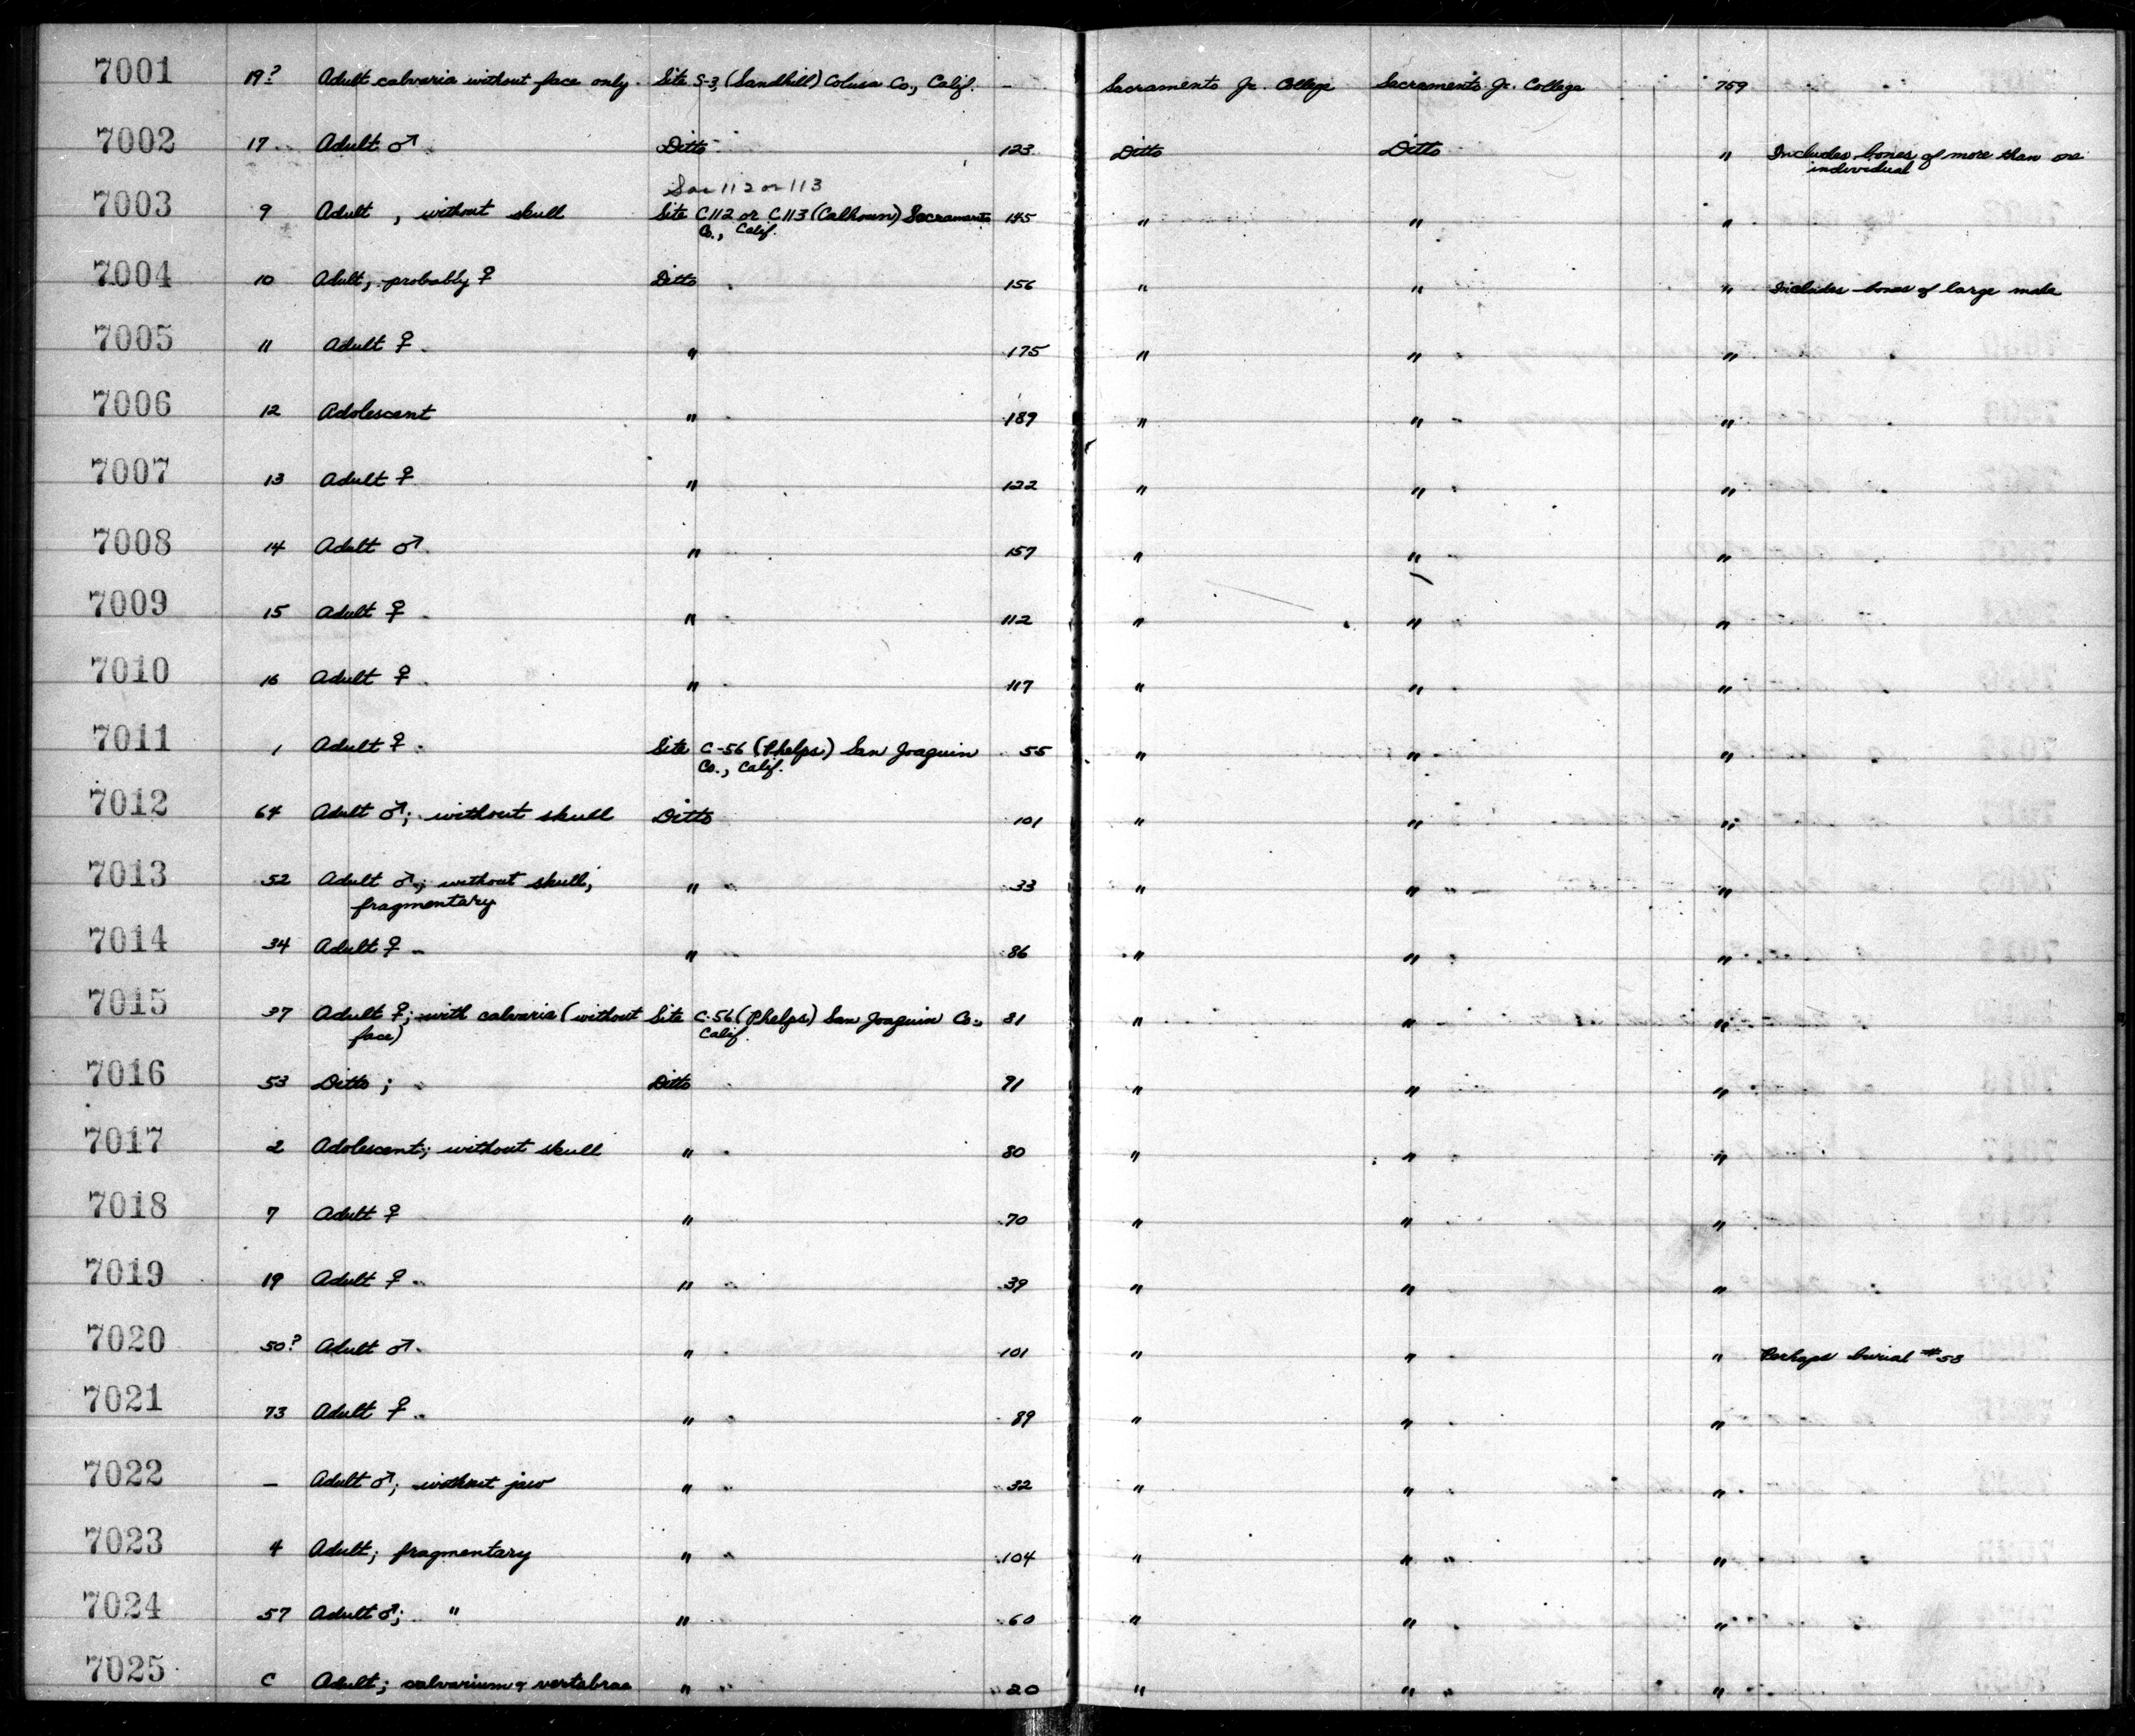 7001 19? Adult calvaria without face only. Site S-3, (Sandhill) Colusa Co., Calif. - Sacramento Jr. College Sacramento Jr. College 759
7002 17 Adult ♂ Ditto 123 Ditto Ditto " Includes bones of more than one
individual
Sac 112 or 113
7003 9 Adult , without skull Site C.112 or C.113 (Calhoun) Sacramento 145 " " "
Co., Calif.
7004 10 Adult, probably ♀ Ditto 156 " " " Includes bones of large male
7005 11 Adult ♀ " 175 " " "
7006 12 Adolescent " 189 " " "
7007 13 Adult ♀ " 122 " " "
7008 14 Adult ♂ " 157 " " "
7009 15 Adult ♀ " 112 " " "
7010 16 Adult ♀ " 117 " " "
7011 1 Adult ♀ Site C-56 (Phelps) San Joaquin 55 " " "
Co., Calif.
7012 64 Adult ♂; without skull Ditto 101 " " "
7013 52 Adult ♂; without skull; " 33 " " "
fragmentary
7014 34 Adult ♀ " 86 " " "
7015 37 Adult ♀; with calvaria (without Site C-56 (Phelps) San Joaquin Co., 81 " " "
face) Calif.
7016 53 Ditto; Ditto 91 " " "
7017 2 Adolescent; without skull " 80 " " "
7018 7 Adult ♀ " 70 " " "
7019 19 Adult ♀ " 39 " " "
7020 50? Adult ♂ " 101 " " " Perhaps burial #58
7021 73 Adult ♀ " 89 " " "
7022 - Adult ♂; without jaw " 32 " " "
7023 4 Adult; fragmentary " 104 " " "
7024 57 Adult ♂; " " 60 " " "
7025 C Adult; calvarium & vertabrae " 20 " " "